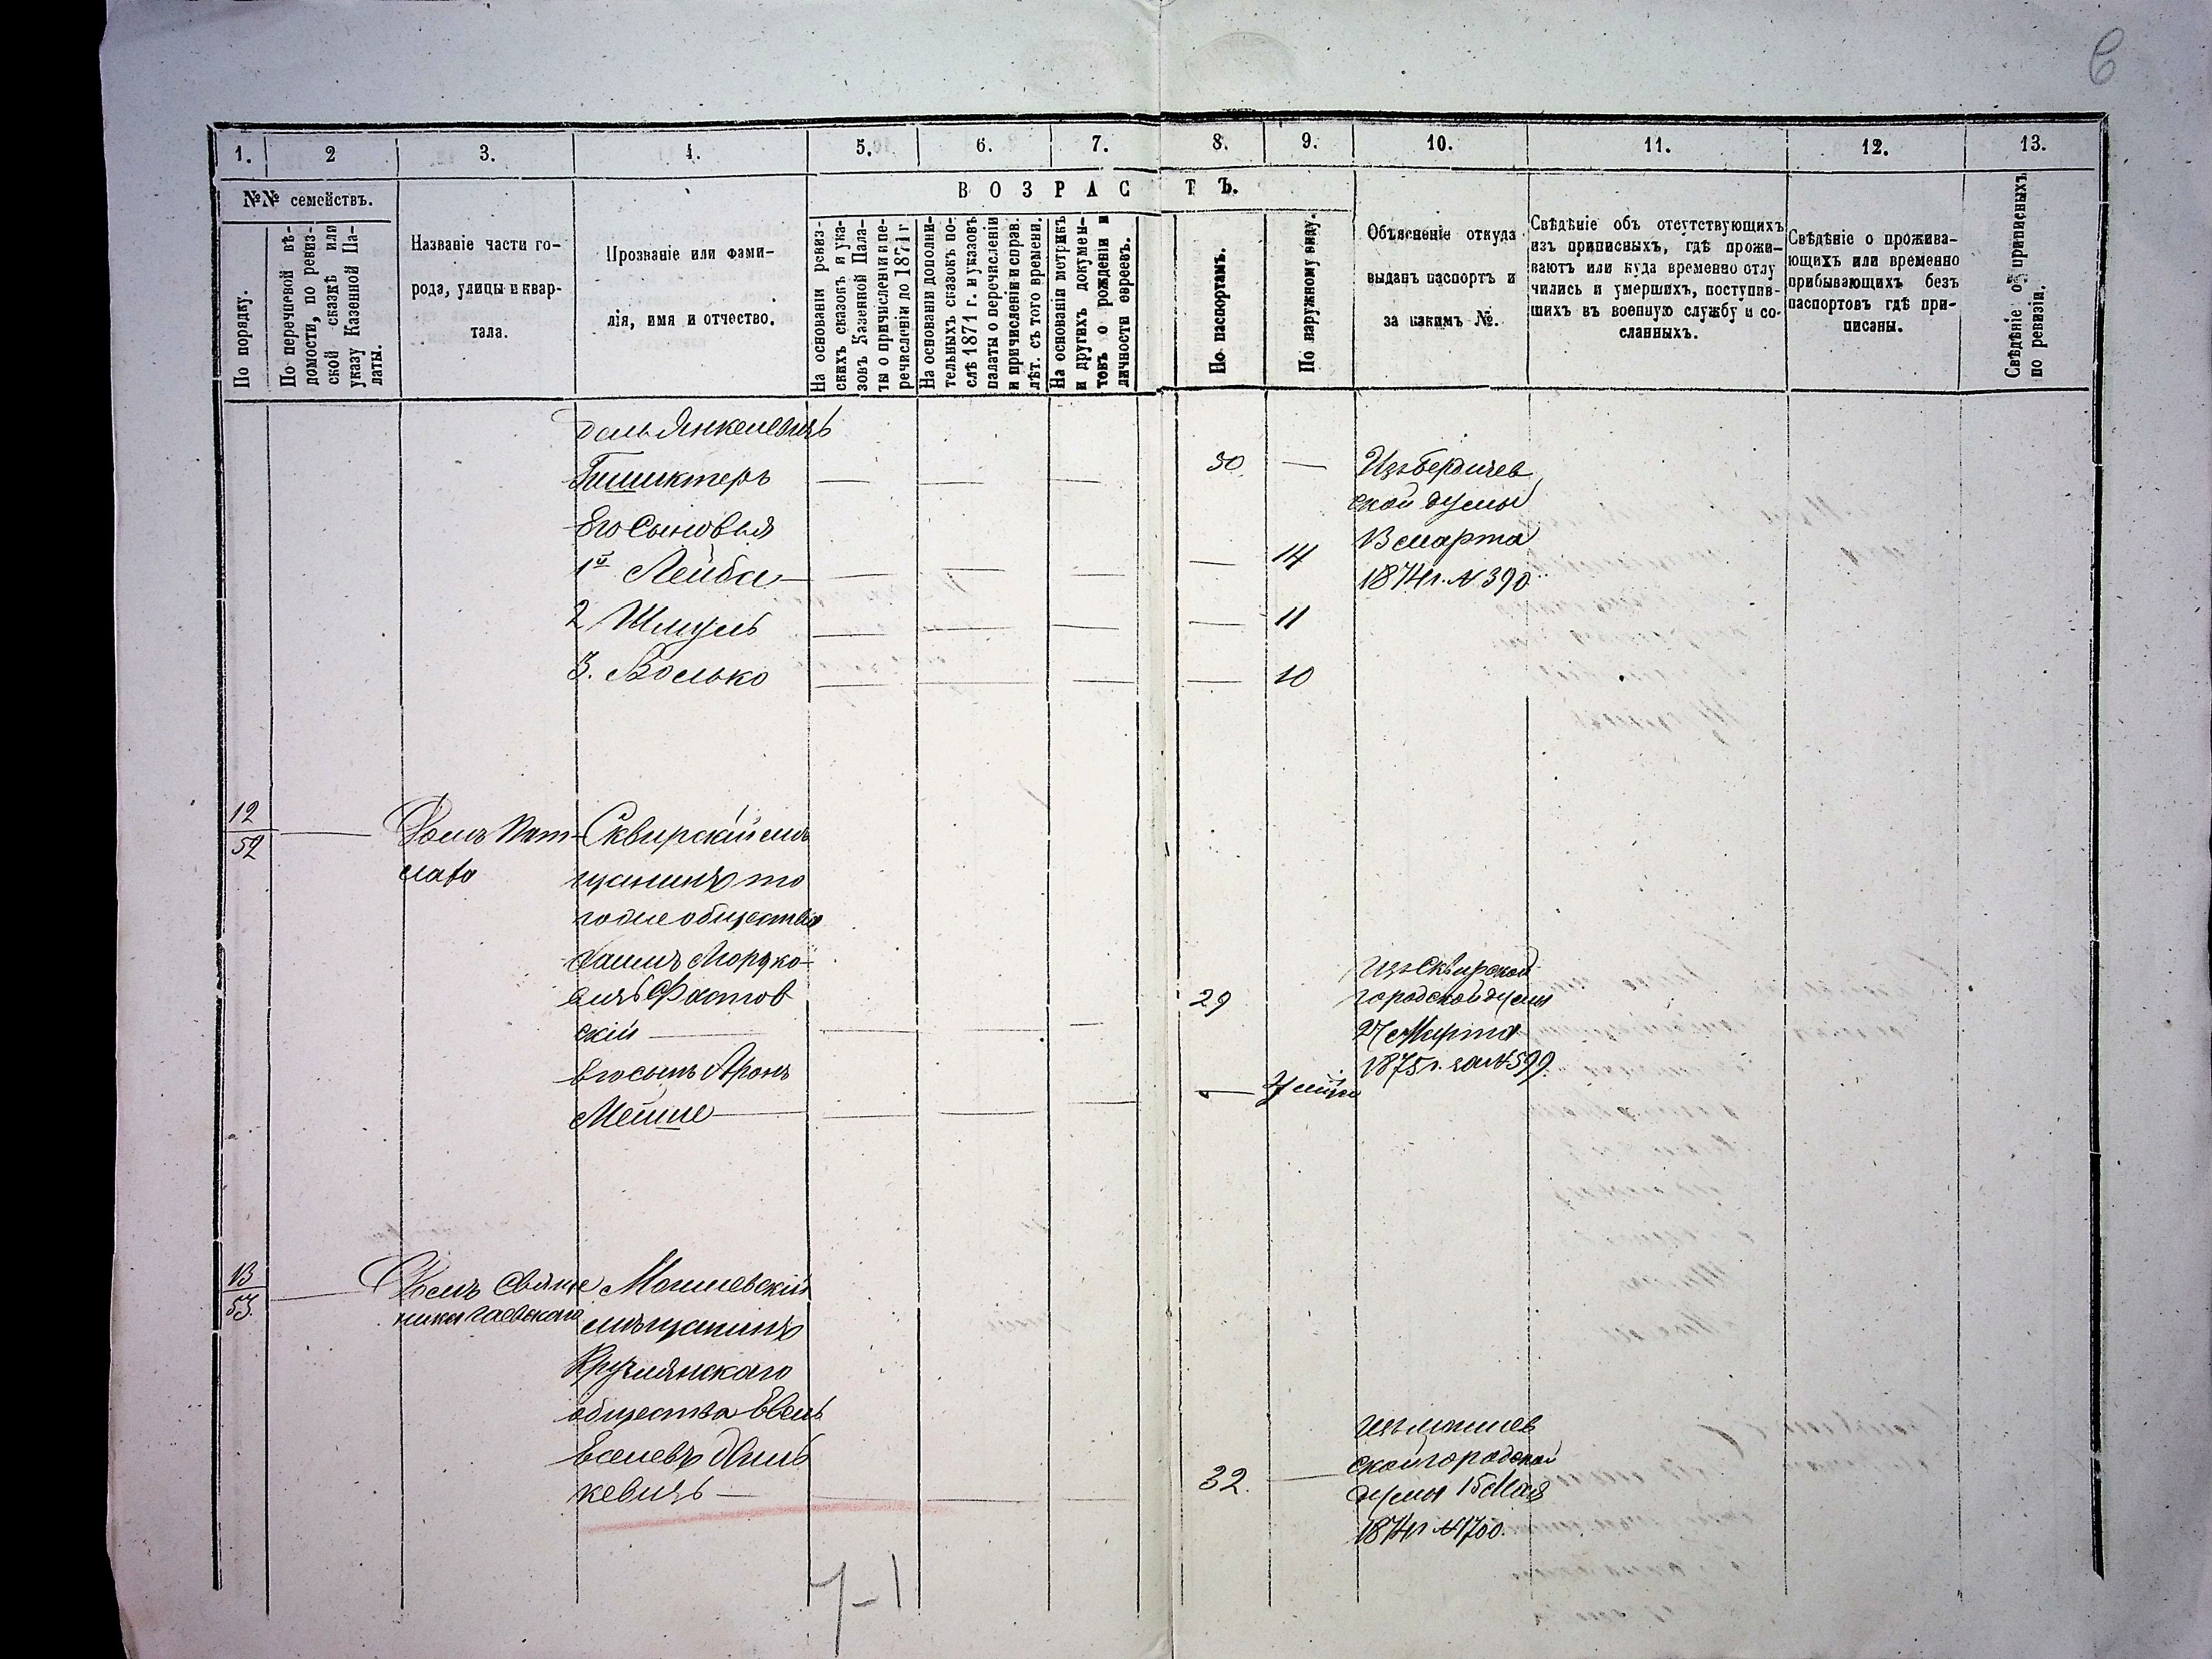 6
1.
2
3.
4.
5.
6.
7.
8.
9.
10.
11.
12.
13.
№№ семействъ.
ВОЗРАСТЪ.
По порядку.
По перечневой вѣ-
домости, по ревиз-
ской сказкѣ или
указу Казенной Па-
латы.
Названіе части го-
рода, улицы и квар-
тала.
Прозваніе или фами-
лія, имя и отчество.
На основаніи ревиз-
скихъ сказокъ и ука-
зовъ Казенной Пала-
ты о причисленіи и пе-
речисленіи до 1871 г.
На основаніи дополни-
тельныхъ сказокъ по-
слѣ 1871 г. и указовъ
палаты о перечисленіи
и причисленіи и справ.
лѣт. съ того времени.
На основаніи метрикъ
и другихъ докумен-
товъ о рожденіи и
личности евреевъ.
По паспортамъ.
По наружному виду.
Объясненіе откуда
выданъ паспортъ и
за какимъ №.
Свѣдѣніе объ отсутствующихъ
изъ приписныхъ, гдѣ прожи-
ваютъ или куда временно отлу
чились и умершихъ, поступив-
шихъ въ военную службу и со-
сланныхъ.
Свѣдѣніе о прожива-
ющихъ или временно
прибывающихъ безъ
паспортовъ гдѣ при-
писаны.
Свѣдѣніе о приписныхъ
по ревизіи.
Янкелевичъ
30 — Изъ Бердичев
Его сыновья
ской думы
13 марта
1й Лейба — — — — — 14
1874 г. № 390
2 Шмуль — — — — 11
3. Волько — — — — 10
12
52
Домъ
Сквирскій мѣ
щанинъ то
гоже общества
Мордко-
вичъ
скій — — — — 29
Изъ Сквирской
городской думы
27 Марта
1875 г. за № 599.
Его сынъ Аронъ
Мейше — — — — —
13
53
Домъ Свяще
ника
Могилевскій
мѣщанинъ
общества
кевичъ — — — — 32. —
Изъ Могилев
ской городской
думы 15 Мая
1874 г № 1700.
7-1